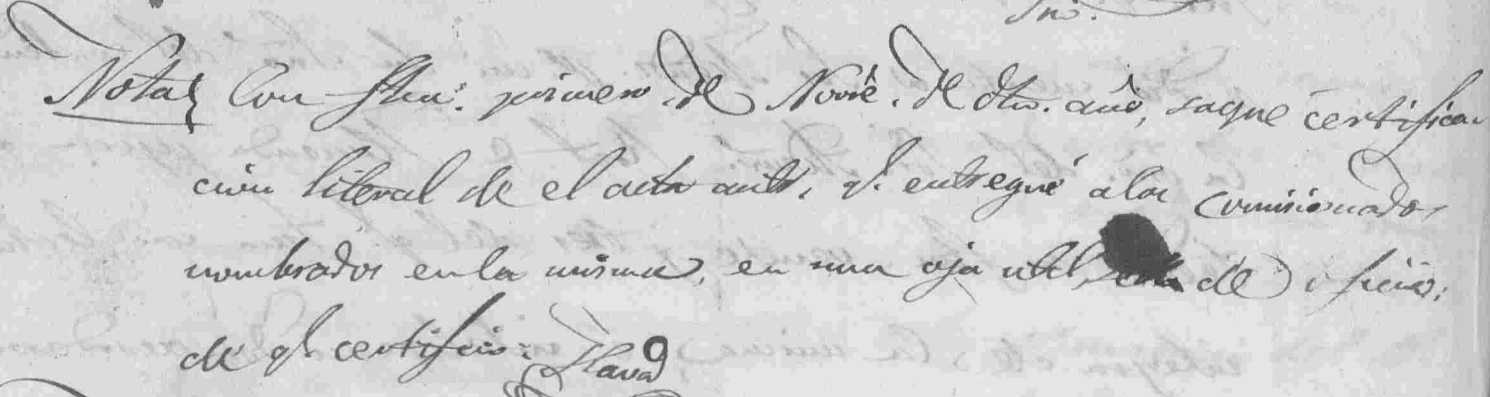 Srio.
Nota} Con fha. primero de Novie. de dho. año, saque certifica
cion literal de el acta antr. q. entregué a los comisionados
nombrados en la misma, en una oja util de oficio,
de q. certifico: